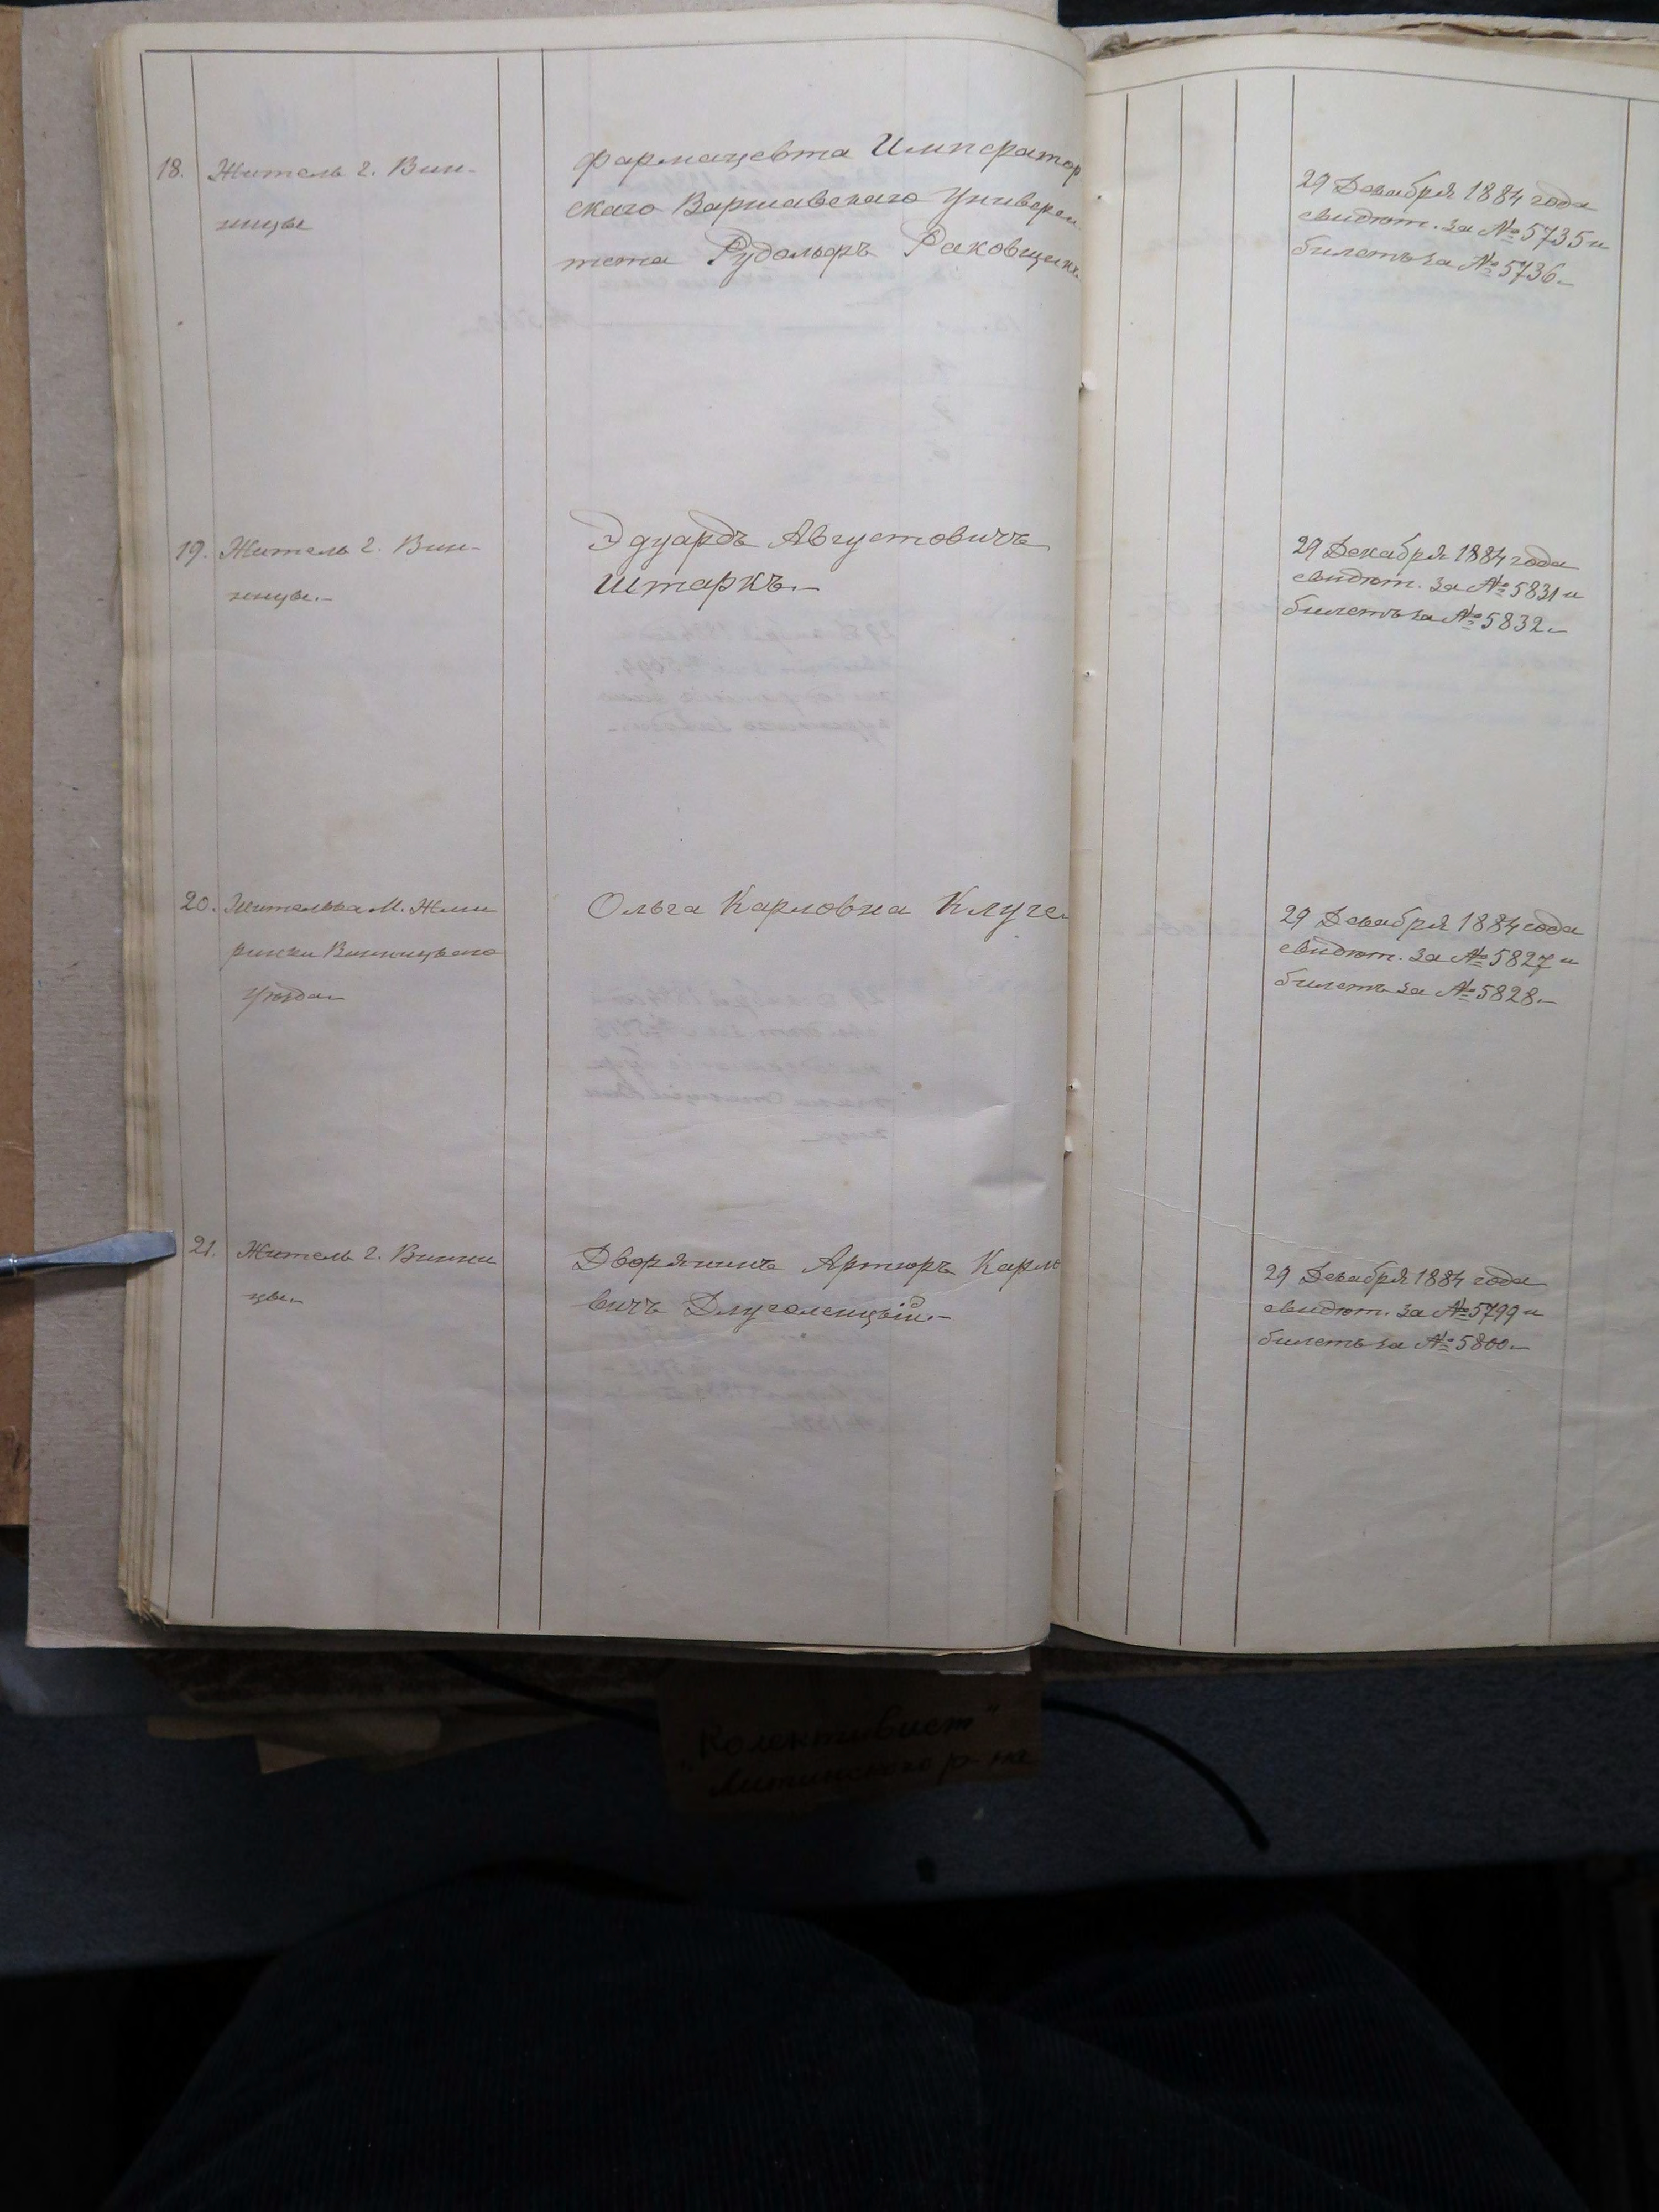 18. Житель г. Вин-
ницы
Фармацевта Император
скаго Варшавскаго Универси
тета Рудольфъ Раковщикъ
29 Декабря 1884 года
свидѣт. за № 5735 и
билетъ за № 5736.-
19. Житель г. Вин-
ницы.-
Эдуардъ Августовичъ
Штаркъ.-
29 Декабря 1884 года
свидѣт. за № 5831 и
билетъ за № 5832.-
20. Жителька М. Жме
ринки Винницкаго
уѣзда.-
Ольга Карловна Клуге
29 Декабря 1884 года
свидѣт. за № 5827 и
билетъ за № 5828.-
21. Житель г. Винни
цы.-
Дворянинъ Артюръ Карло
вичъ Длуголенцкій.-
29 Декабря 1884 года
свидѣт. за № 5799 и
билетъ за № 5800.-
"Колективист"
Литинского р-на